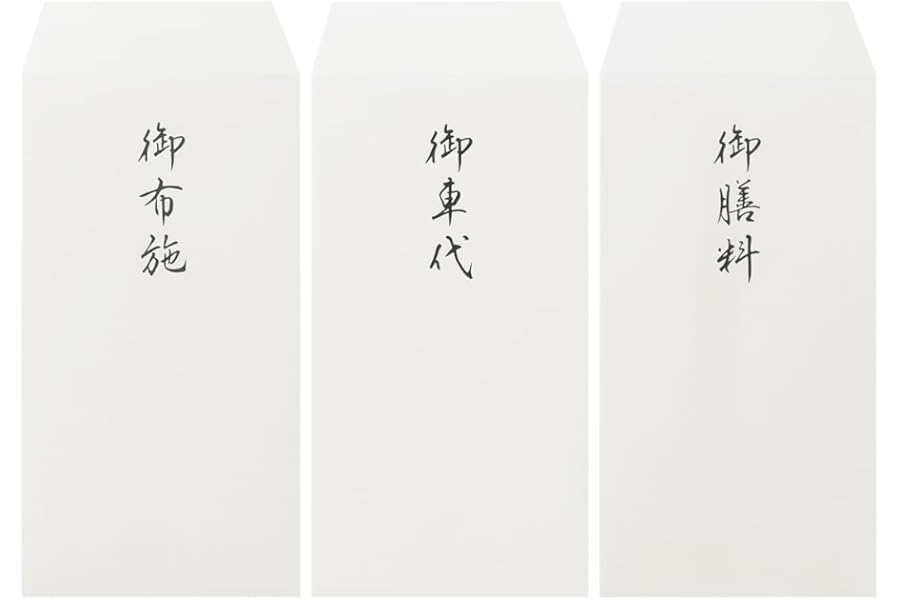 御布施
御車代
御膳料